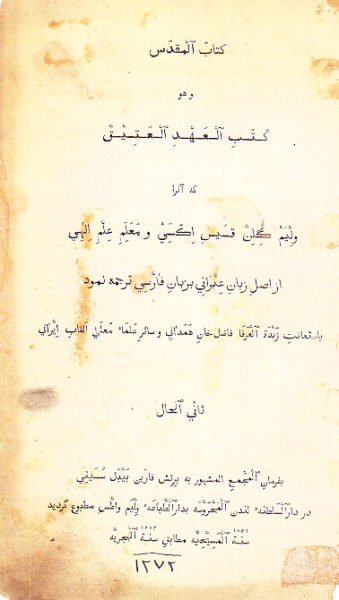 كتاب المقدّس
و هو
كُتُبِ العَهْدِ العَتِيقْ
كه آنرا
وِلْيَمْ كِلِنْ قسّيسِ اِكسّيْ و مُعَلِّمِ عِلْمِ اِلٰهِي
از اصلِ زبانِ عِبْرانِي بزبانِ فارسِي ترجمه نمود
باستعانتِ زُبْدَة العُرَفا فاضل خانِ هَمَدانِي و سائرِ عُلماءِ مُعَلّٰي القابِ اِيْراني
ثاني الحال
بفرمانِ المَجْمَعِ المشهور به بِرِتِش فارين بَيْبَل سُسَيتِي
در دار السلطنهء لندن المَحْرُوْسَه بدار الطّباعهء وليَم واطْس مطبوع گرديد
سنة ١٨٥٦ المَسِيْحِيَّه مطابق سنة ١٢٧٢ الهجريّه
١٢٧٢